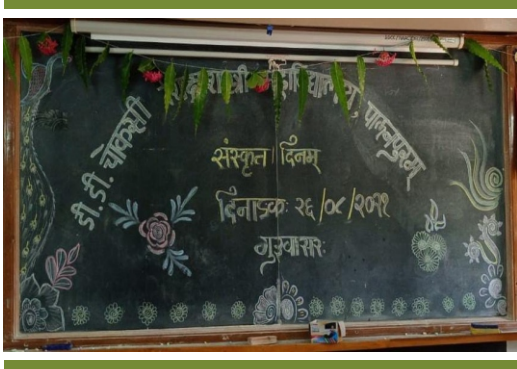 डी.डी. चोकसी पालनपुरम्
संस्कृत दिनम्
दिनाङ्कः २६/०८/२०२१
गुरुवासरः